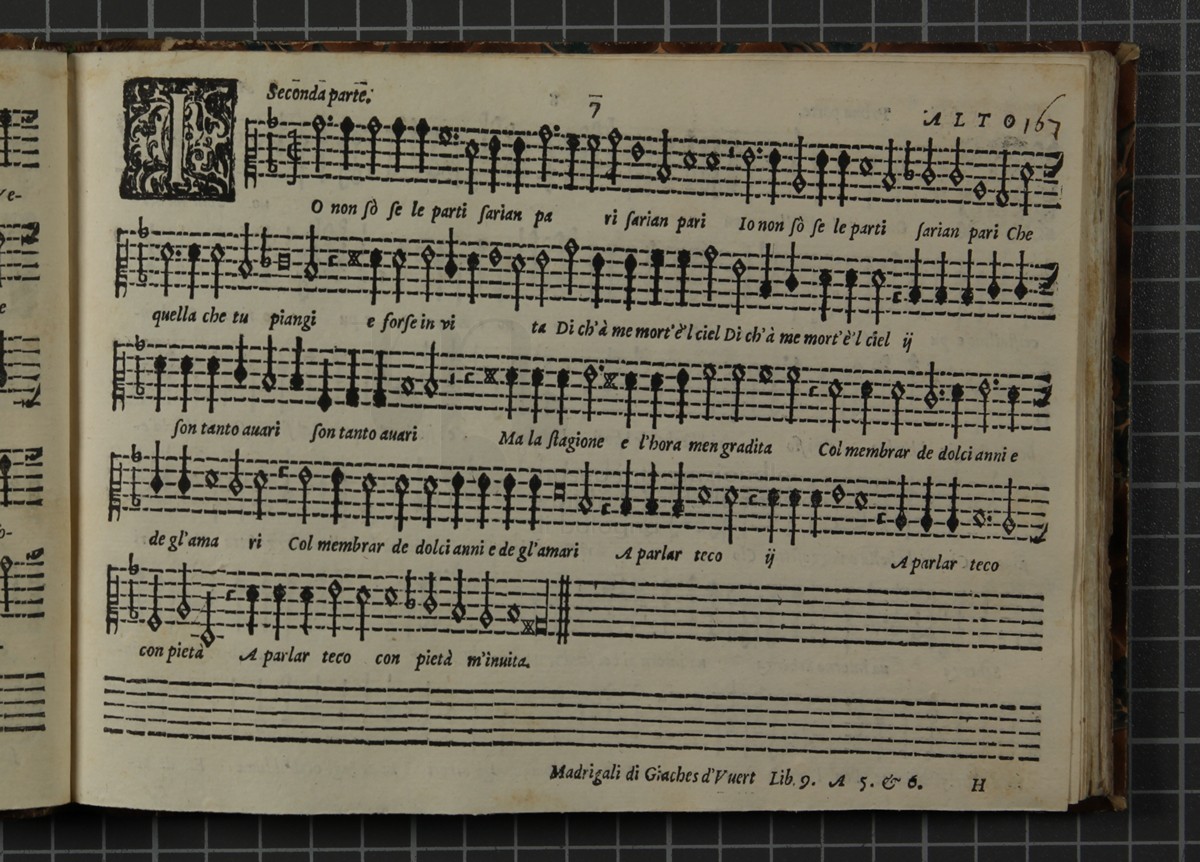 Seconda parte. 7 ALTO 167
IO non sò se le parti sarian pa ri sarian pari Io non sò se le parti sarian pari Che
quella che tu piangi e forse in vi ta Di ch'à me mort'è'l ciel Di ch'à me mort'è'l ciel ij
son tanto auari son tanto auari Ma la stagione e l'hora men gradita Col membrar de dolci anni e
de gl'ama ri Col membrar de dolci anni e de gl'amari A parlar teco ij A parlar teco
con pietà A parlar teco con pietà m'inuita.
Madrigali di Giaches d'Vuert Lib. 9. A 5. & 6. H